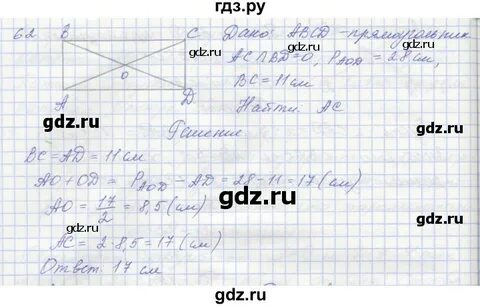 гдз.ру
62 B C Дано: ABCD - прямоугольник
AC∩BD=O, P_AOD = 28 см,
O
BC = 11 см
A D Найти: AC
Решение
BC = AD = 11 см
AO + OD = P_AOD - AD = 28 - 11 = 17 (см)
AO = 17/2 = 8,5 (см)
AC = 2·8,5 = 17 (см)
Ответ: 17 см
gdz.ru
gdz.ru
gdz.ru
gdz.ru
gdz.ru
gdz.ru
gdz.ru
gdz.ru
gdz.ru
gdz.ru